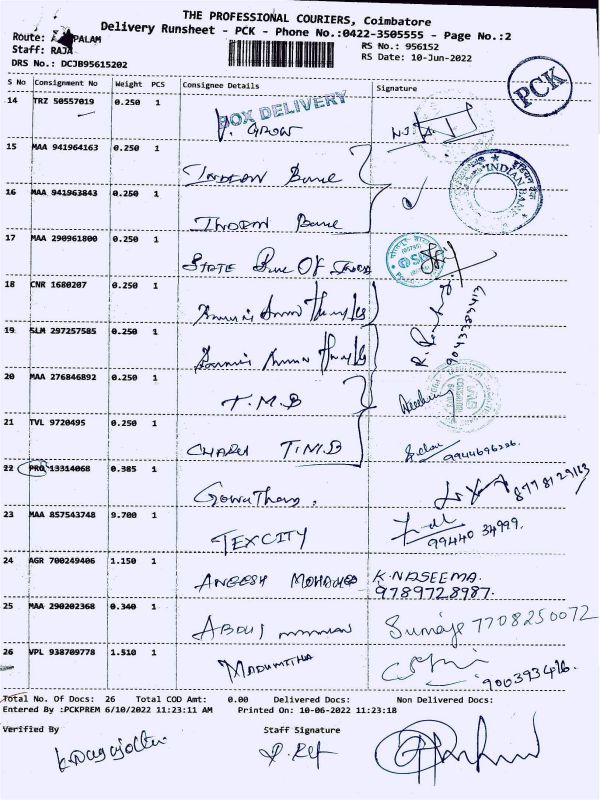 THE PROFESSIONAL COURIERS, Coimbatore
Delivery Runsheet - PCK - Phone No.:0422-3505555 - Page No.:2
Route: PALAM
Staff: RAJA
DRS No.: DCJB95615202
RS No.: 956152
RS Date: 10-Jun-2022
S No Consignment No Weight PCS Consignee Details Signature
PCK
BOX DELIVERY
14 TRZ 50557019 0.250 1 V. GROW
15 MAA 941964163 0.250 1 INDIAN Bank
INDIAN BANK
16 MAA 941963843 0.250 1 INDIAN Bank
17 MAA 290961800 0.250 1 STATE Bank OF India
18 CNR 1680207 0.250 1
19 SLM 297257585 0.250 1
20 MAA 276846892 0.250 1 T.M.B
21 TVL 9720495 0.250 1 CHARU T.M.B
22 PRO 13314068 0.385 1 Gowtham.
23 MAA 857543748 9.700 1 TEXCITY 99440 34999.
24 AGR 700249406 1.150 1 ANEESH MOHAMED K.NASEEMA.
9789728987.
25 MAA 290202368 0.340 1 ABDUL 7708250072
26 VPL 938709778 1.510 1 MADUMITHA
Total No. Of Docs: 26 Total COD Amt: 0.00 Delivered Docs: Non Delivered Docs:
Entered By :PCKPREM 6/10/2022 11:23:11 AM Printed On: 10-06-2022 11:23:18
Verified By Staff Signature